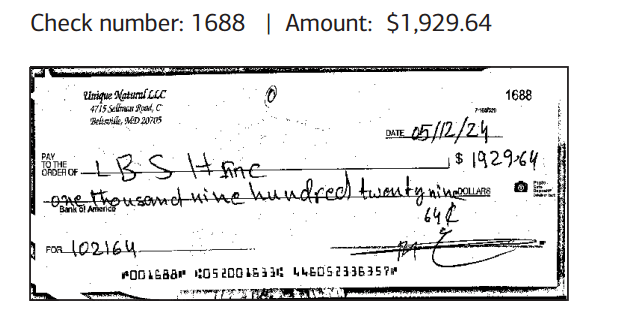 Check number: 1688 | Amount: $1,929.64
Unique Natural LLC 1688
4715 Sellman Road, C
Beltsville, MD 20705
DATE 05/12/24
PAY TO THE ORDER OF LBS H Inc $ 1929.64
one thousand nine hundred twenty nine DOLLARS
Bank of America
64¢
FOR 102164
⑈001688⑈ ⑆052001633⑆ 446052336357⑈